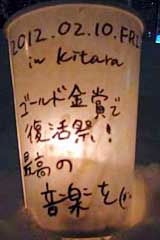 2012.02.10.FRI
in kitara
ゴールド金賞で
復活祭!
最高の
音楽を